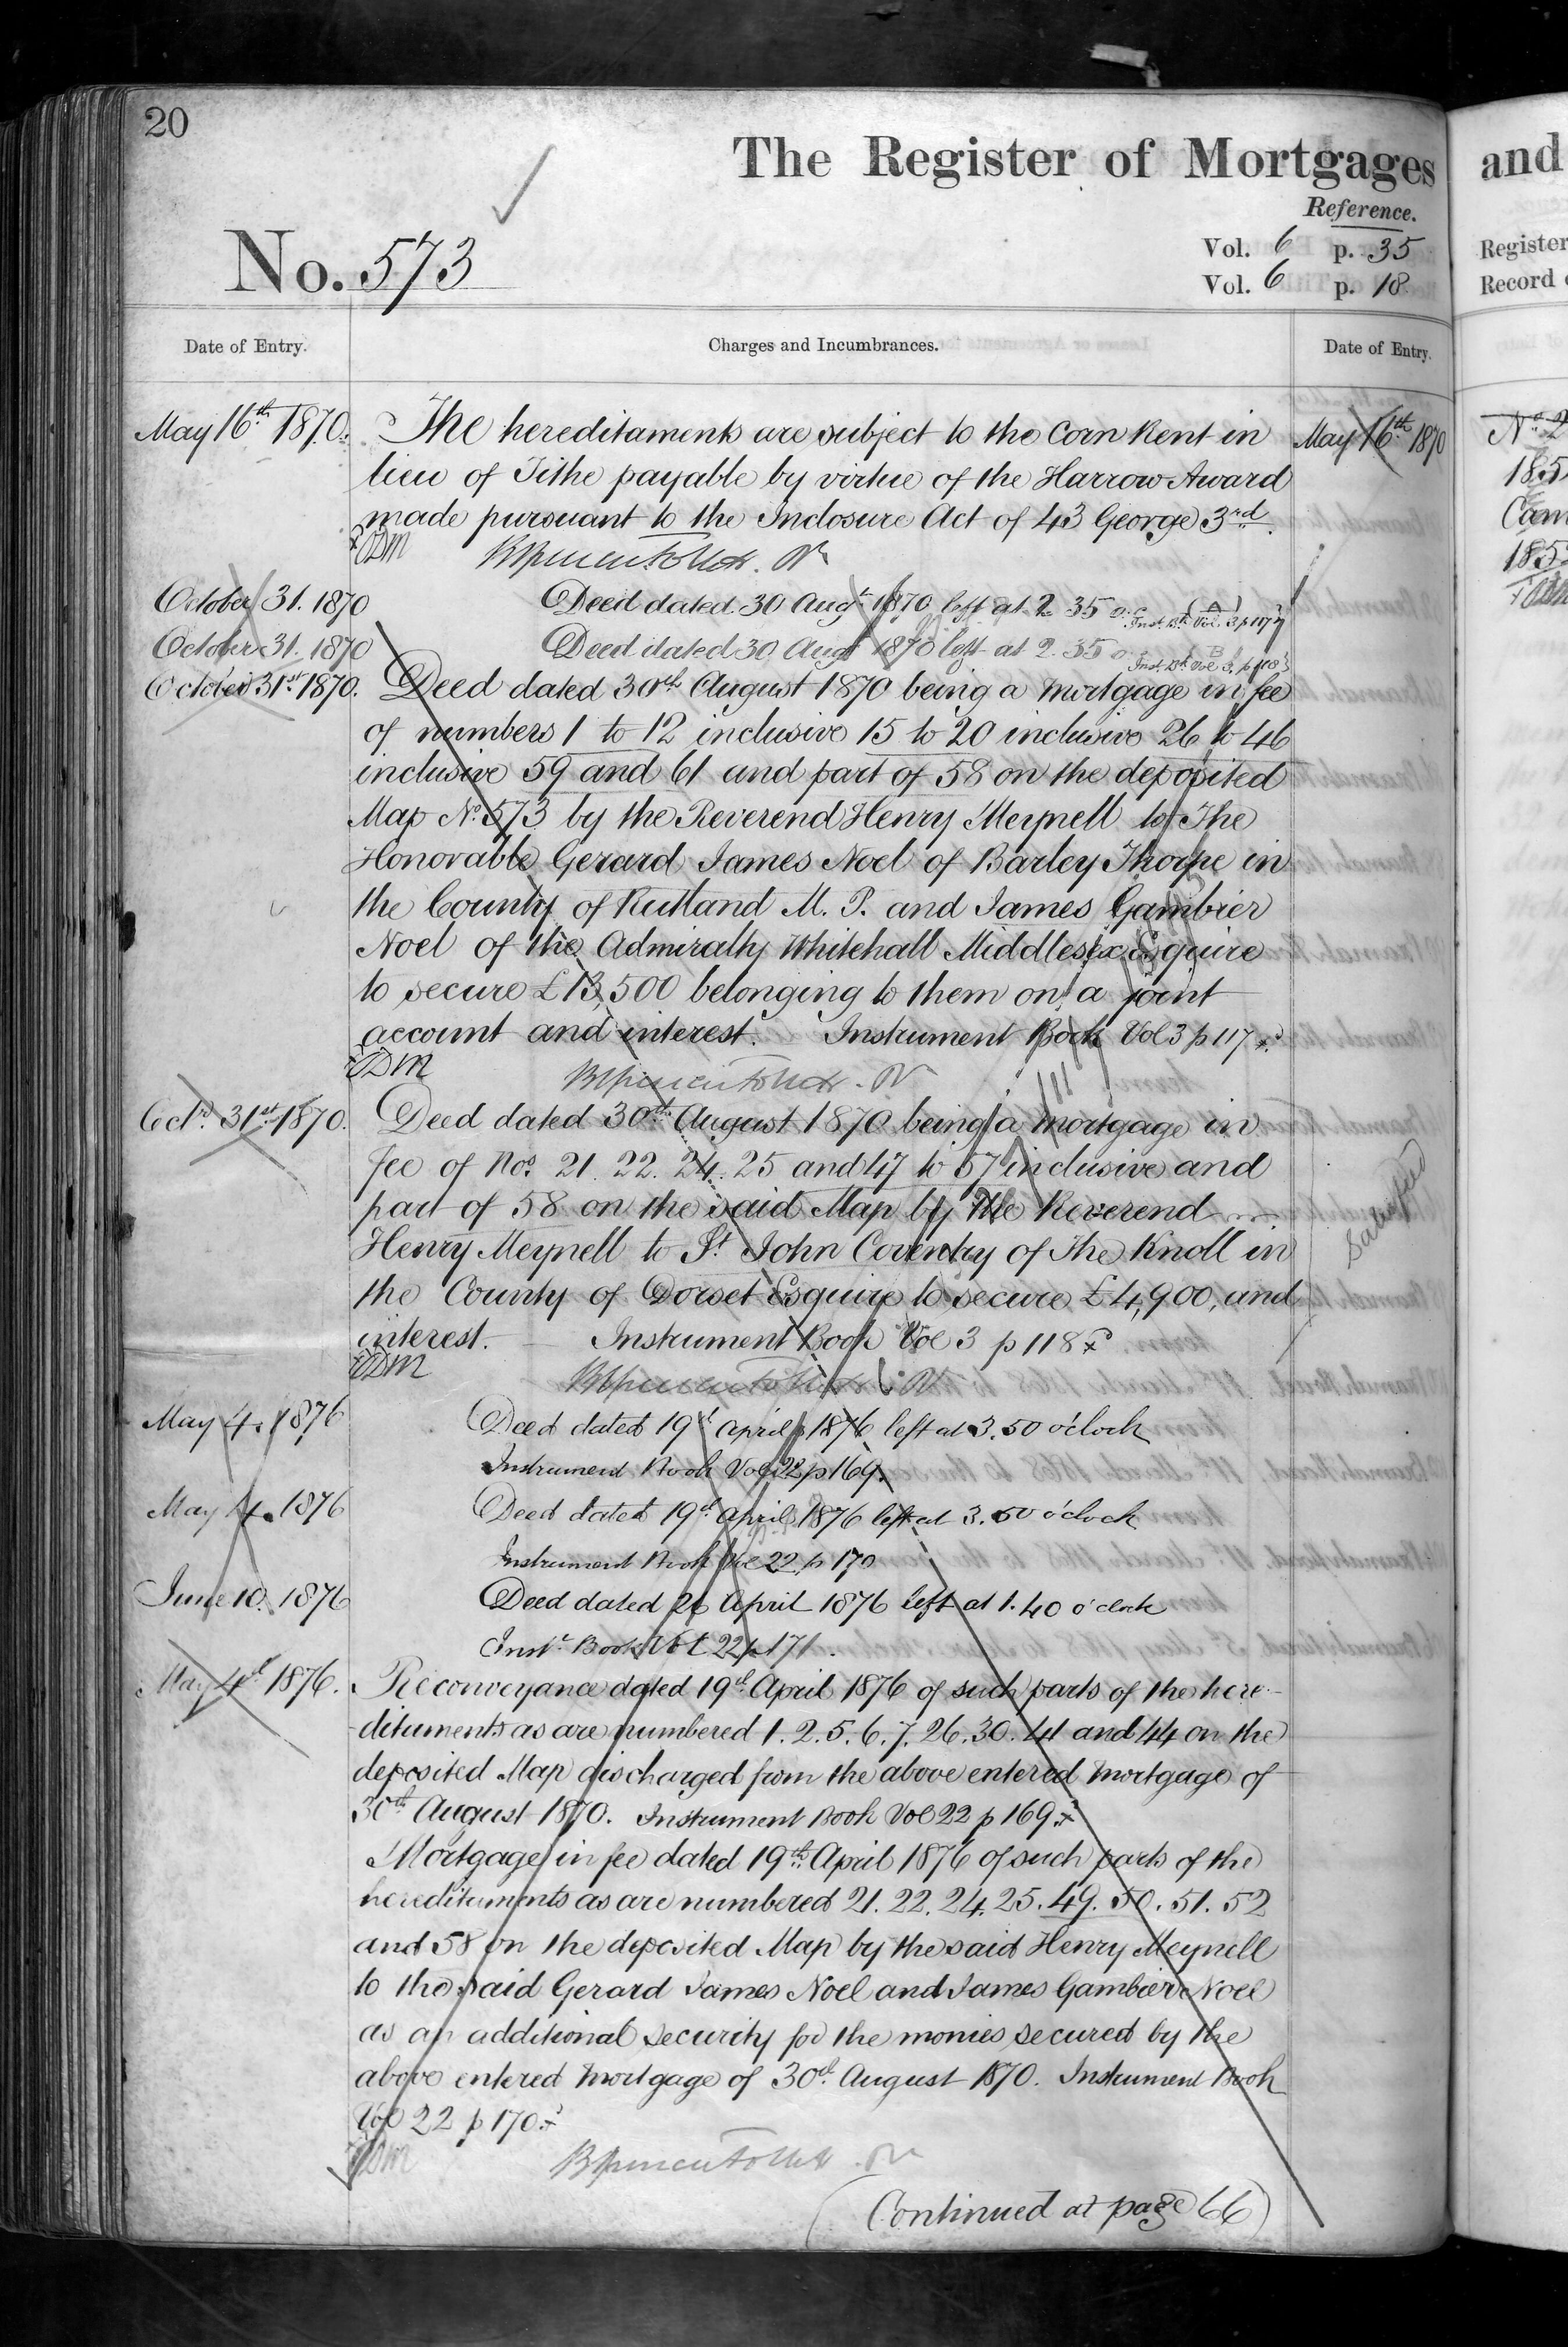 20
The Register of Mortgages
and
Reference.
No. 573
Vol. 6 p. 35
Vol. 6 p. 18
Register
Record
Date of Entry.
Charges and Incumbrances.
Date of Entry.
May 16th 1870.
The hereditaments are subject to the Corn Rent in
May 16th 1870
lieu of Tithe payable by virtue of the Harrow Award
made pursuant to the Inclosure Act of 43 George 3rd.
October 31. 1870
Deed dated 30 Augt 1870 left at 2 35 o.c. (A) Inst. Bk Vol. 3 p 117
October 31. 1870
Deed dated 30 Augt 1870 left at 2. 35 o.c. B Inst. Bk Vol 3. p 118
October 31st 1870.
Deed dated 30th August 1870 being a mortgage in fee
of numbers 1 to 12 inclusive 15 to 20 inclusive 26 to 46
inclusive 59 and 61 and part of 58 on the deposited
Map No. 573 by the Reverend Henry Meynell to The
Honorable Gerard James Noel of Barley Thorpe in
the County of Rutland M. P. and James Gambier
Noel of the Admiralty Whitehall Middlesex Esquire
to secure £13,500 belonging to them on a joint
account and interest. Instrument Book Vol 3 p 117
Octr. 31st 1870.
Deed dated 30th August 1870 being a mortgage in
fee of Nos. 21. 22. 24. 25 and 47 to 57 inclusive and
part of 58 on the said Map by the Reverend
Henry Meynell to St. John Coventry of The Knoll in
the County of Dorset Esquire to secure £4,900, and
interest. Instrument Book Vol 3 p 118
Satisfied
May 4. 1876
Deed dated 19th April 1876 left at 3.50 o'clock
Instrument Book Vol 22 p 169.
May 4. 1876
Deed dated 19th April 1876 left at 3.50 o'clock
Instrument Book Vol 22 p 170
June 10. 1876
Deed dated 26 April 1876 left at 1.40 o'clock
Inst. Book Vol 22 p 171.
May 4th 1876.
Reconveyance dated 19th April 1876 of such parts of the here-
-ditaments as are numbered 1. 2. 5. 6. 7. 26. 30. 41 and 44 on the
deposited Map discharged from the above entered mortgage of
30th August 1870. Instrument Book Vol 22 p 169
Mortgage in fee dated 19th April 1876 of such parts of the
hereditaments as are numbered 21. 22. 24. 25. 49. 50. 51. 52
and 58 on the deposited Map by the said Henry Meynell
to the said Gerard James Noel and James Gambier Noel
as an additional security for the monies secured by the
above entered mortgage of 30th August 1870. Instrument Book
Vol 22 p 170
(Continued at page 66)